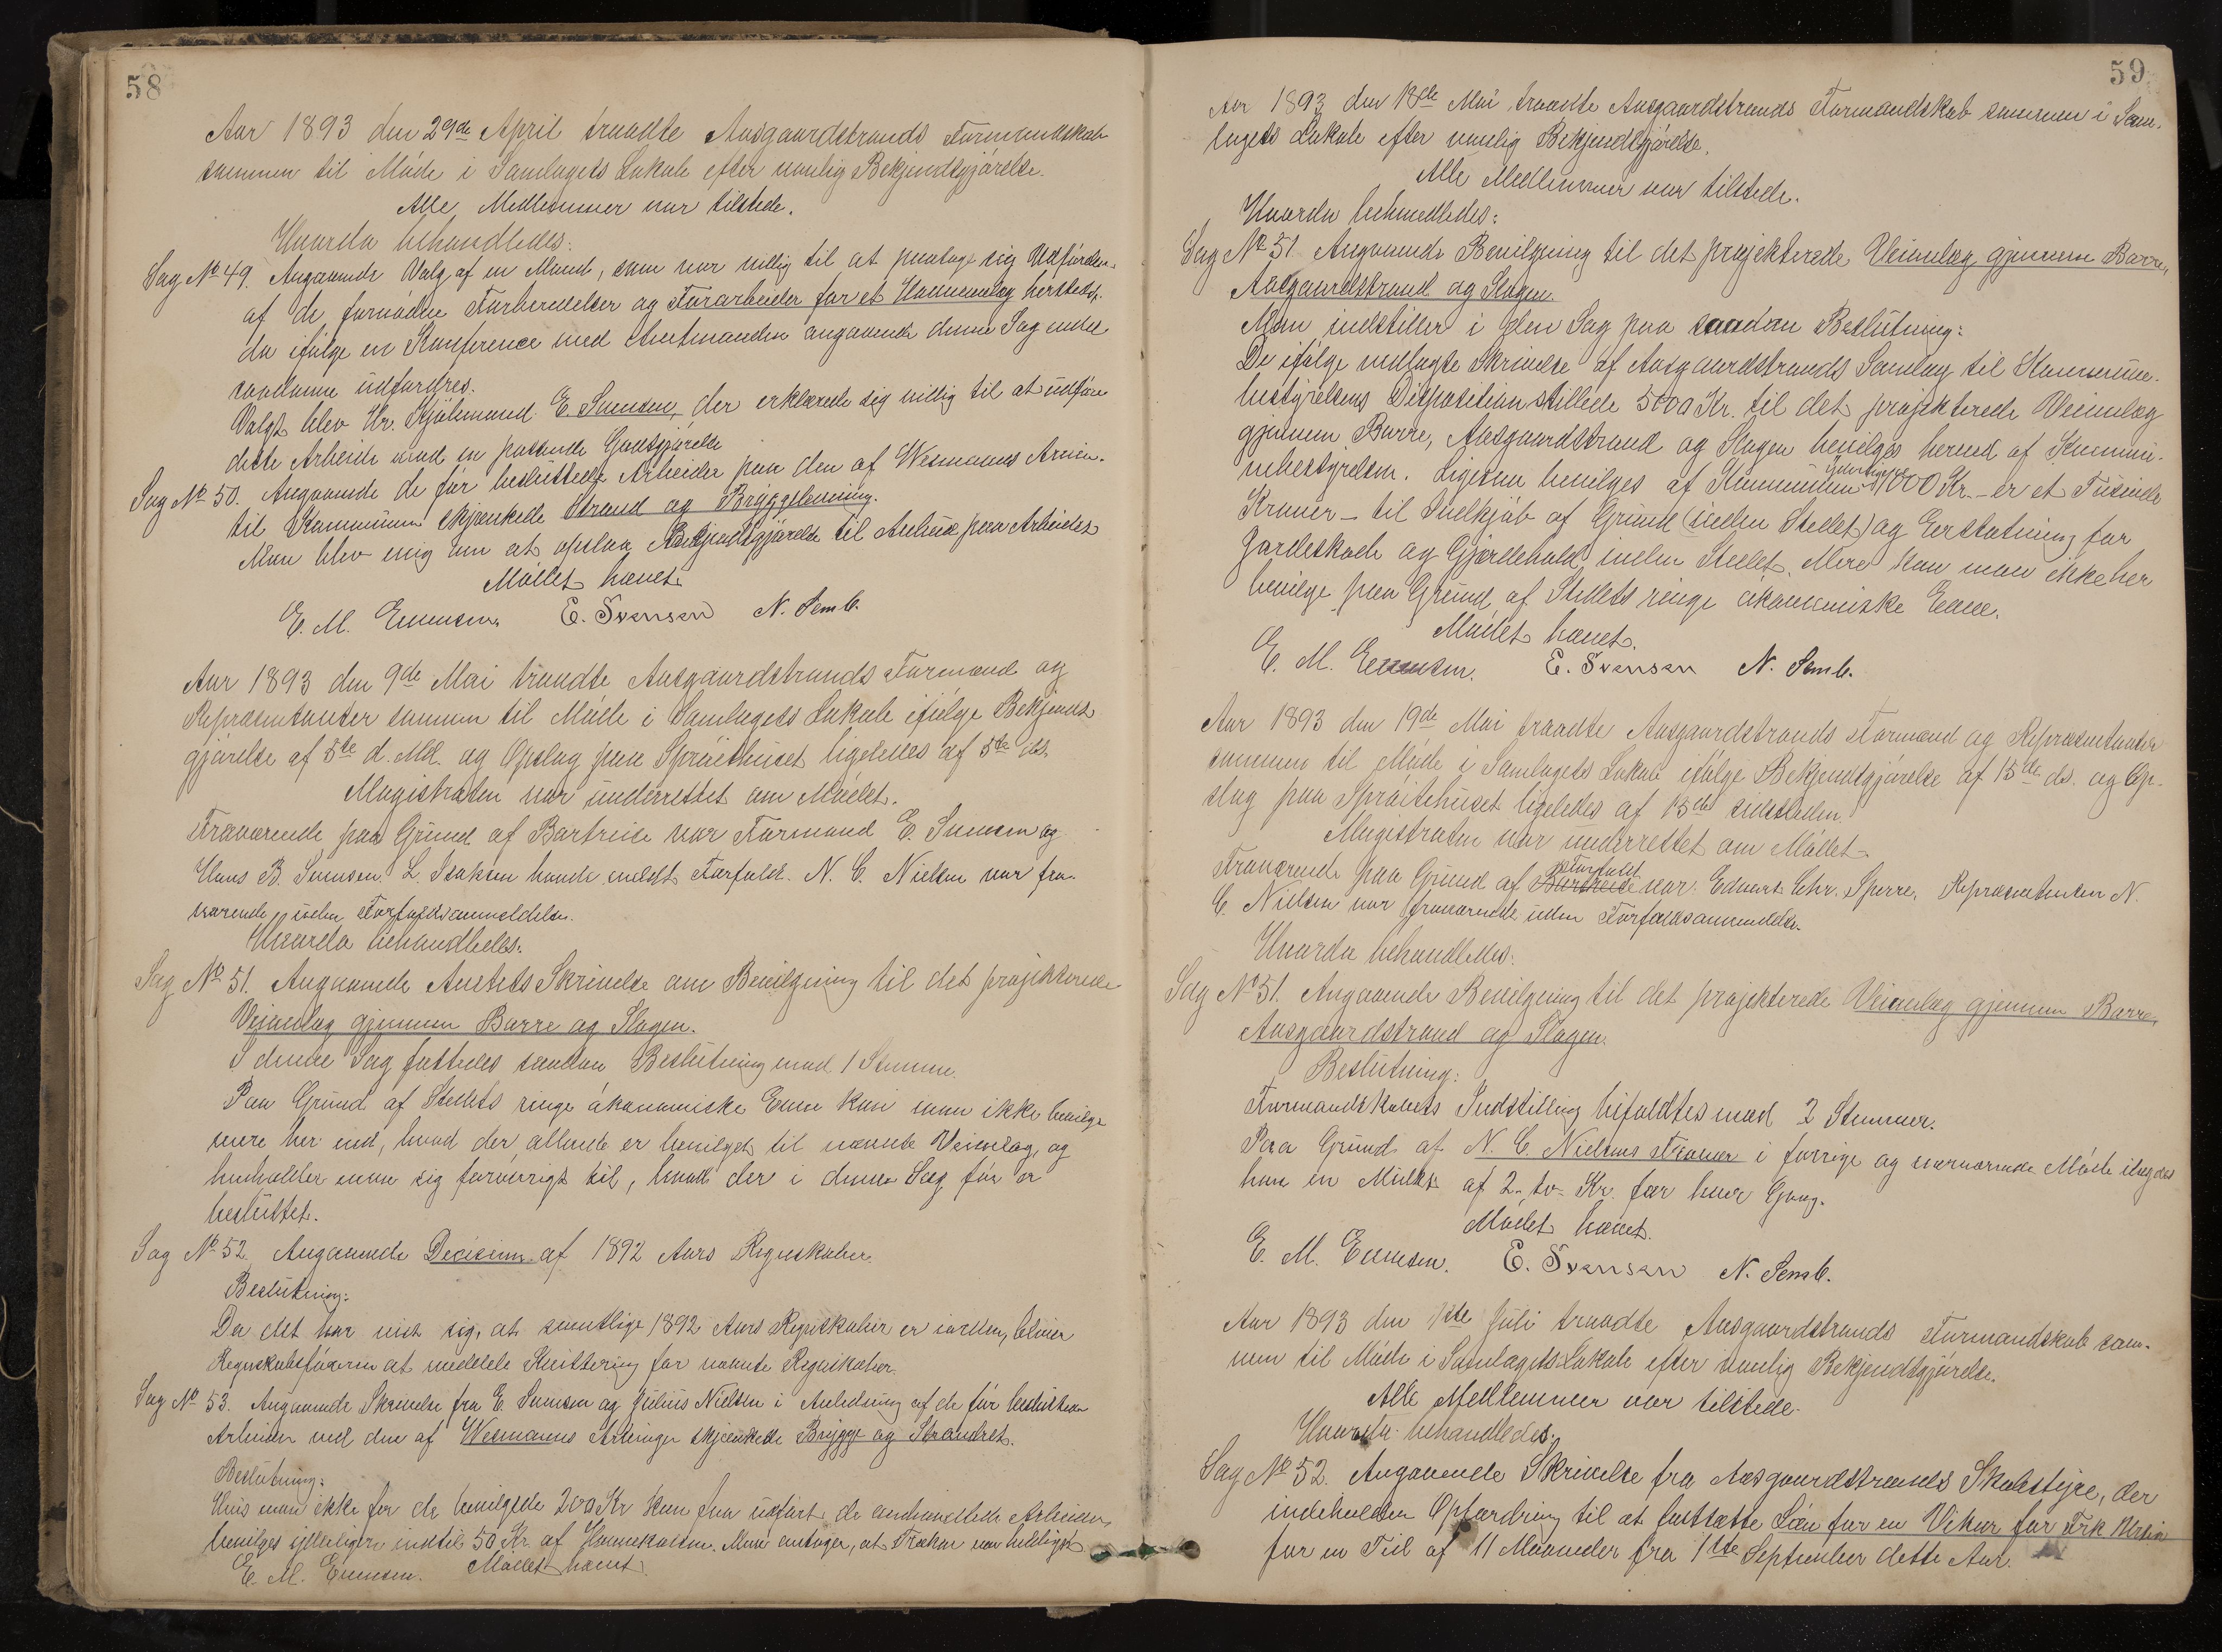 58
Aar 1893 den 29de April traadte Aasgaardstrands Formandskab
sammen til Möde i Samlagets Lokale efter vanlig Bekjendtgjörelse.
Alle Medlemmer var tilstede.
Hvorda behandledes:
Sag No 49. Angaaende Valg af en Mand, som var villig til at paatage sig Udförelsen
af de fornödne Forberedelser og Forarbeider for et Havneanlæg hersteds,
da ifölge en Konference med Amtmanden angaaende denne Sag
saadanne udfordres.
Valgt blev Hr. E. Svensen, der erklærede sig villig til at udföre
dette Arbeide mod en passende Godtgjörelse
Sag No 50. Angaaende de för besluttede Arbeider paa den af Wesmanns Arvin.
til Kommunen skjænkede Strand og Bryggeloening.
Man blev enig om at opslaa Bekjendtgjörelse til Anbud paa Arbeidet
Mödet hævet.
E. M. Evensen. E. Svensen N. Semb.
Aar 1893 den 9de Mai traadte Aasgaardstrands Formænd og
Repræsentanter sammen til Möde i Samlagets Lokale ifölge Bekjendt
gjörelse af 5te d. Md. og Opslag paa Spröitehuset ligeledes af 5te ds.
Magistraten var underrettet om Mödet.
Fraværende paa Grund af Bortreise var Formand E. Svensen og
Hans B. Svensen. L. Isaksen havde meldt Forfald. N. C. Nielsen var fra-
værende uden Forfaldsanmeldelse.
Hvorda behandledes:
Sag No 51. Angaaende Amtets Skrivelse om Bevilgning til det projekterede
Veianlæg gjennem Borre og Slagen.
I denne Sag fattedes saadan Beslutning mod 1 Stemme.
Paa Grund af Stedets ringe ökonomiske Evne kan man ikke bevilge
mere her end, hvad der allerede er bevilget til nævnte Veianlæg, og
henholder man sig forövrigt til, hvad der i denne Sag för er
besluttet.
Sag No 52. Angaaende Decision af 1892 Aars Regnskaber.
Beslutning:
Da det har vist sig, at samtlige 1892 Aars Regnskaber er iorden, bliver
Regnskabsföreren at meddele Kvittering for nævnte Regnskaber.
Sag No 53. Angaaende Skrivelse fra E. Svensen og Julius Nielsen i Anledning af de för besluttede
Arbeider ved den af Wesmanns Arvinger skjænkede Brygge og Strandret.
Beslutning:
Hvis man ikke for de bevilgede 200 Kr kan faa udfört de omhandlede Arbeider,
bevilges yderligere indtil 50 Kr. af Havnekassen. Man antager, at Trækar var heldigst
E. M. Evensen. Mödet hævet.
59
Aar 1893 den 18de Mai traadte Aasgaardstrands Formandskab sammen i Sam-
lagets Lokale efter vanlig Bekjendtgjörelse.
Alle Medlemmer var tilstede.
Hvorda behandledes:
Sag No 51. Angaaende Bevilgning til det projekterede Veianlæg gjennem Borre,
Aasgaardstrand og Slagen.
Man indstiller i den Sag paa saadan Beslutning:
De ifölge vedlagte Skrivelse af Aasgaardstrands Samlag til Kommune-
bestyrelsens Disposition stillede 5000 Kr. til det projekterede Veianlæg
gjennem Borre, Aasgaardstrand og Slagen bevilges herved af Kommu-
nebestyrelsen. Ligesom bevilges af Kommunen 1000 Kr. – er et Tusinde
Kroner – til Indkjöb af Grund (inden Stedet) og Erstatning for
Jordeskade og Gjærdehold inden Stedet. Mere kan man ikke her
bevilge paa Grund af Stedets ringe ökonomiske Evne.
Mödet hævet.
E. M. Evensen. E. Svensen N. Semb.
Aar 1893 den 19de Mai traadte Aasgaardstrands Formænd og Repræsentanter
sammen til Möde i Samlagets Lokale ifölge Bekjendtgjörelse af 15de ds. og Op-
slag paa Spröitehuset ligeledes af 15de sidstleden.
Magistraten var underrettet om Mödet.
Fraværende paa Grund af Bortreise Forfald var Edvart Chr. Sperre. Repræsentanten N.
C. Nielsen var fraværende uden Forfaldsanmeldelse.
Hvorda behandledes:
Sag No 51. Angaaende Bevilgning til det projekterede Veianlæg gjennem Borre,
Aasgaardstrand og Slagen.
Beslutning:
Formandskabets Indstilling bifaldtes mod 2 Stemmer.
Paa Grund af N. C. Nielsens Fravær i forrige og nærværende Möde ilegges
ham en Mulkt af 2 – to – Kr. for hver Gang.
Mödet hævet.
E. M. Evensen. E. Svensen N. Semb.
Aar 1893 den 1ste Juli traadte Aasgaardstrands Formandskab sam-
men til Möde i Samlagets Lokale efter vanlig Bekjendtgjörelse.
Alle Medlemmer var tilstede.
Hvorda behandledes:
Sag No 52. Angaaende Skrivelse fra Aasgaardstrands Skolestyre, der
indeholder Opfordring til at fastsætte Lön for en Vikar for Frk.
for en Tid af 11 Maaneder fra 1ste September dette Aar.